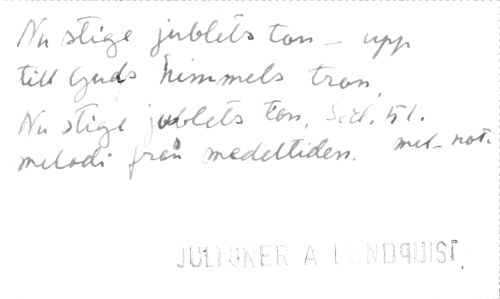 Nu stige jublets ton - upp
till Guds himmels tron,
Nu stige jublets ton, Sid. 51.
melodi från medeltiden. mel-not.
JULTONER A LUNDQUIST.